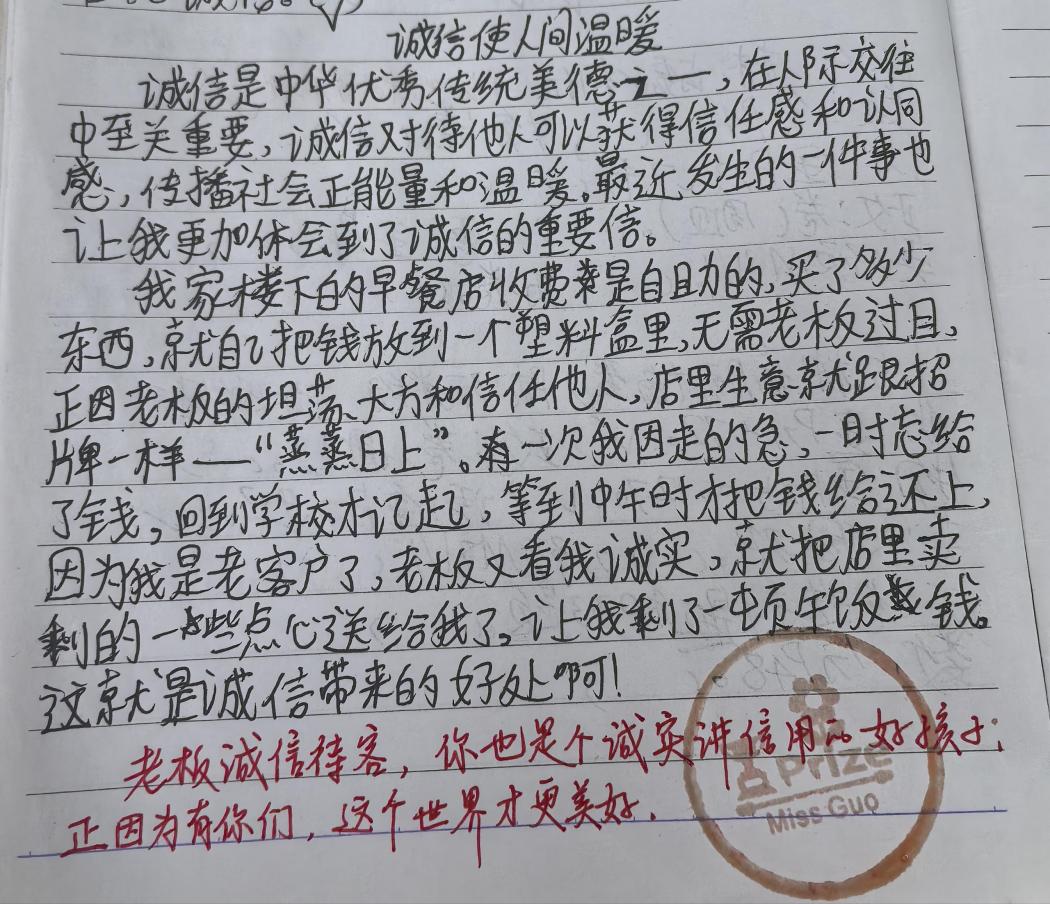 诚信使人间温暖
诚信是中华优秀传统美德之一，在人际交往
中至关重要，诚信对待他人可以获得信任感和认同
感，传播社会正能量和温暖。最近发生的一件事也
让我更加体会到了诚信的重要信。
我家楼下的早餐店收费是自且力的，买了多少
东西，就自己把钱放到一个塑料盒里，无需老板过目，
正因老板的坦荡、大方和信任他人，店里生意就跟招
牌一样——“蒸蒸日上”。有一次我因走的急，一时忘给
了钱，回到学校才记起，等到中午时才把钱给还上，
因为我是老客户了，老板又看我诚实，就把店里卖
剩的一些点心送给我了。让我剩了一顿午饭钱。
这就是诚信带来的好处啊！
老板诚信待客，你也是个诚实讲信用的好孩子；
正因为有你们，这个世界才更美好．
Prize
Miss Guo